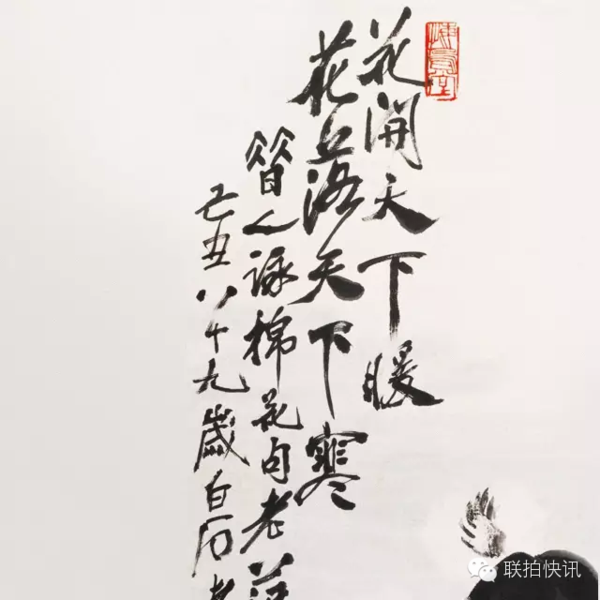 花開天下暖
花落天下寒
昔人詠棉花句老
己丑八十九歲白石
联拍快讯